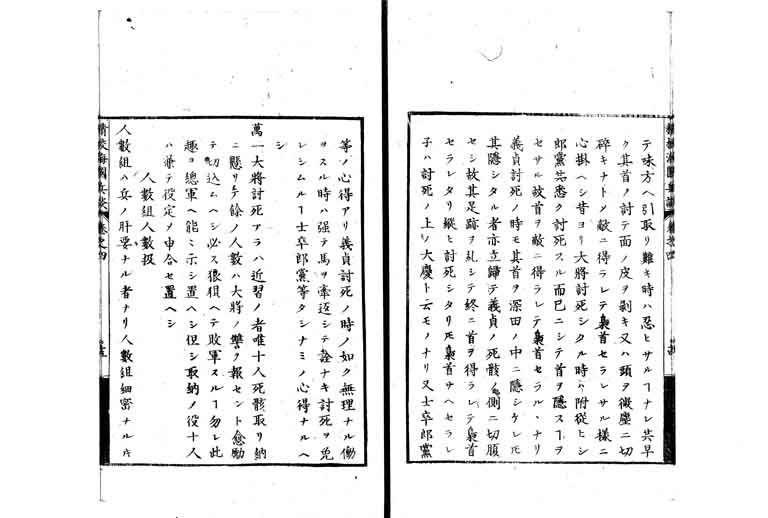 テ味方ヘ引取リ難キ時ハ忍ヒサルヿナレ共早
ク其首ノ討テ面ノ皮ヲ剥キ又ハ頭ヲ微塵ニ切
碎キナトノ敵ニ得ラレテ梟首セラレサル様ニ
心掛ヘシ昔ヨリ大將討死シタル時ハ附從ヒシ
郎黨共悉ク討死スル而已ニシテ首ヲ隱スヿヲ
セサル故首ヲ敵ニ得ラレテ梟首セラル、ナリ
義貞討死ノ時モ其首ヲ深田ノ中ニ隱シケレ𪜈
其隱シタル者亦立歸テ義貞ノ死骸ノ側ニ切腹
セシ故其足跡ヲ糺シテ終ニ首ヲ得ラレテ梟首
セラレタリ縱ヒ討死シタリ𪜈梟首サヘセラレ
子ハ討死ノ上ノ大慶ト云モノナリ又士卒郎黨
精校海國兵談 卷之四
等ノ心得アリ義貞討死ノ時ノ如ク無理ナル働
ヲスル時ハ强テ馬ヲ牽返シテ詮ナキ討死ヲ免
レシムルヿ士卒郎黨等タシナミノ心得ナルヘ
シ
萬一大將討死アラハ近習ノ者唯十人死骸取リ納
ニ懸リテ餘ノ人數ハ大將ノ讐ヲ報セント愈勵
テ切込ムヘシ必ス狼狽ヘテ敗軍スルヿ勿レ此
趣ヲ總軍ヘ能ミ示シ置ヘシ但シ取納ノ役十人
ハ兼テ役定メ申合セ置ヘシ
人數組人數扱
人數組ハ兵ノ肝要ナル者ナリ人數組細密ナル𪜈
精校海國兵談 卷之四